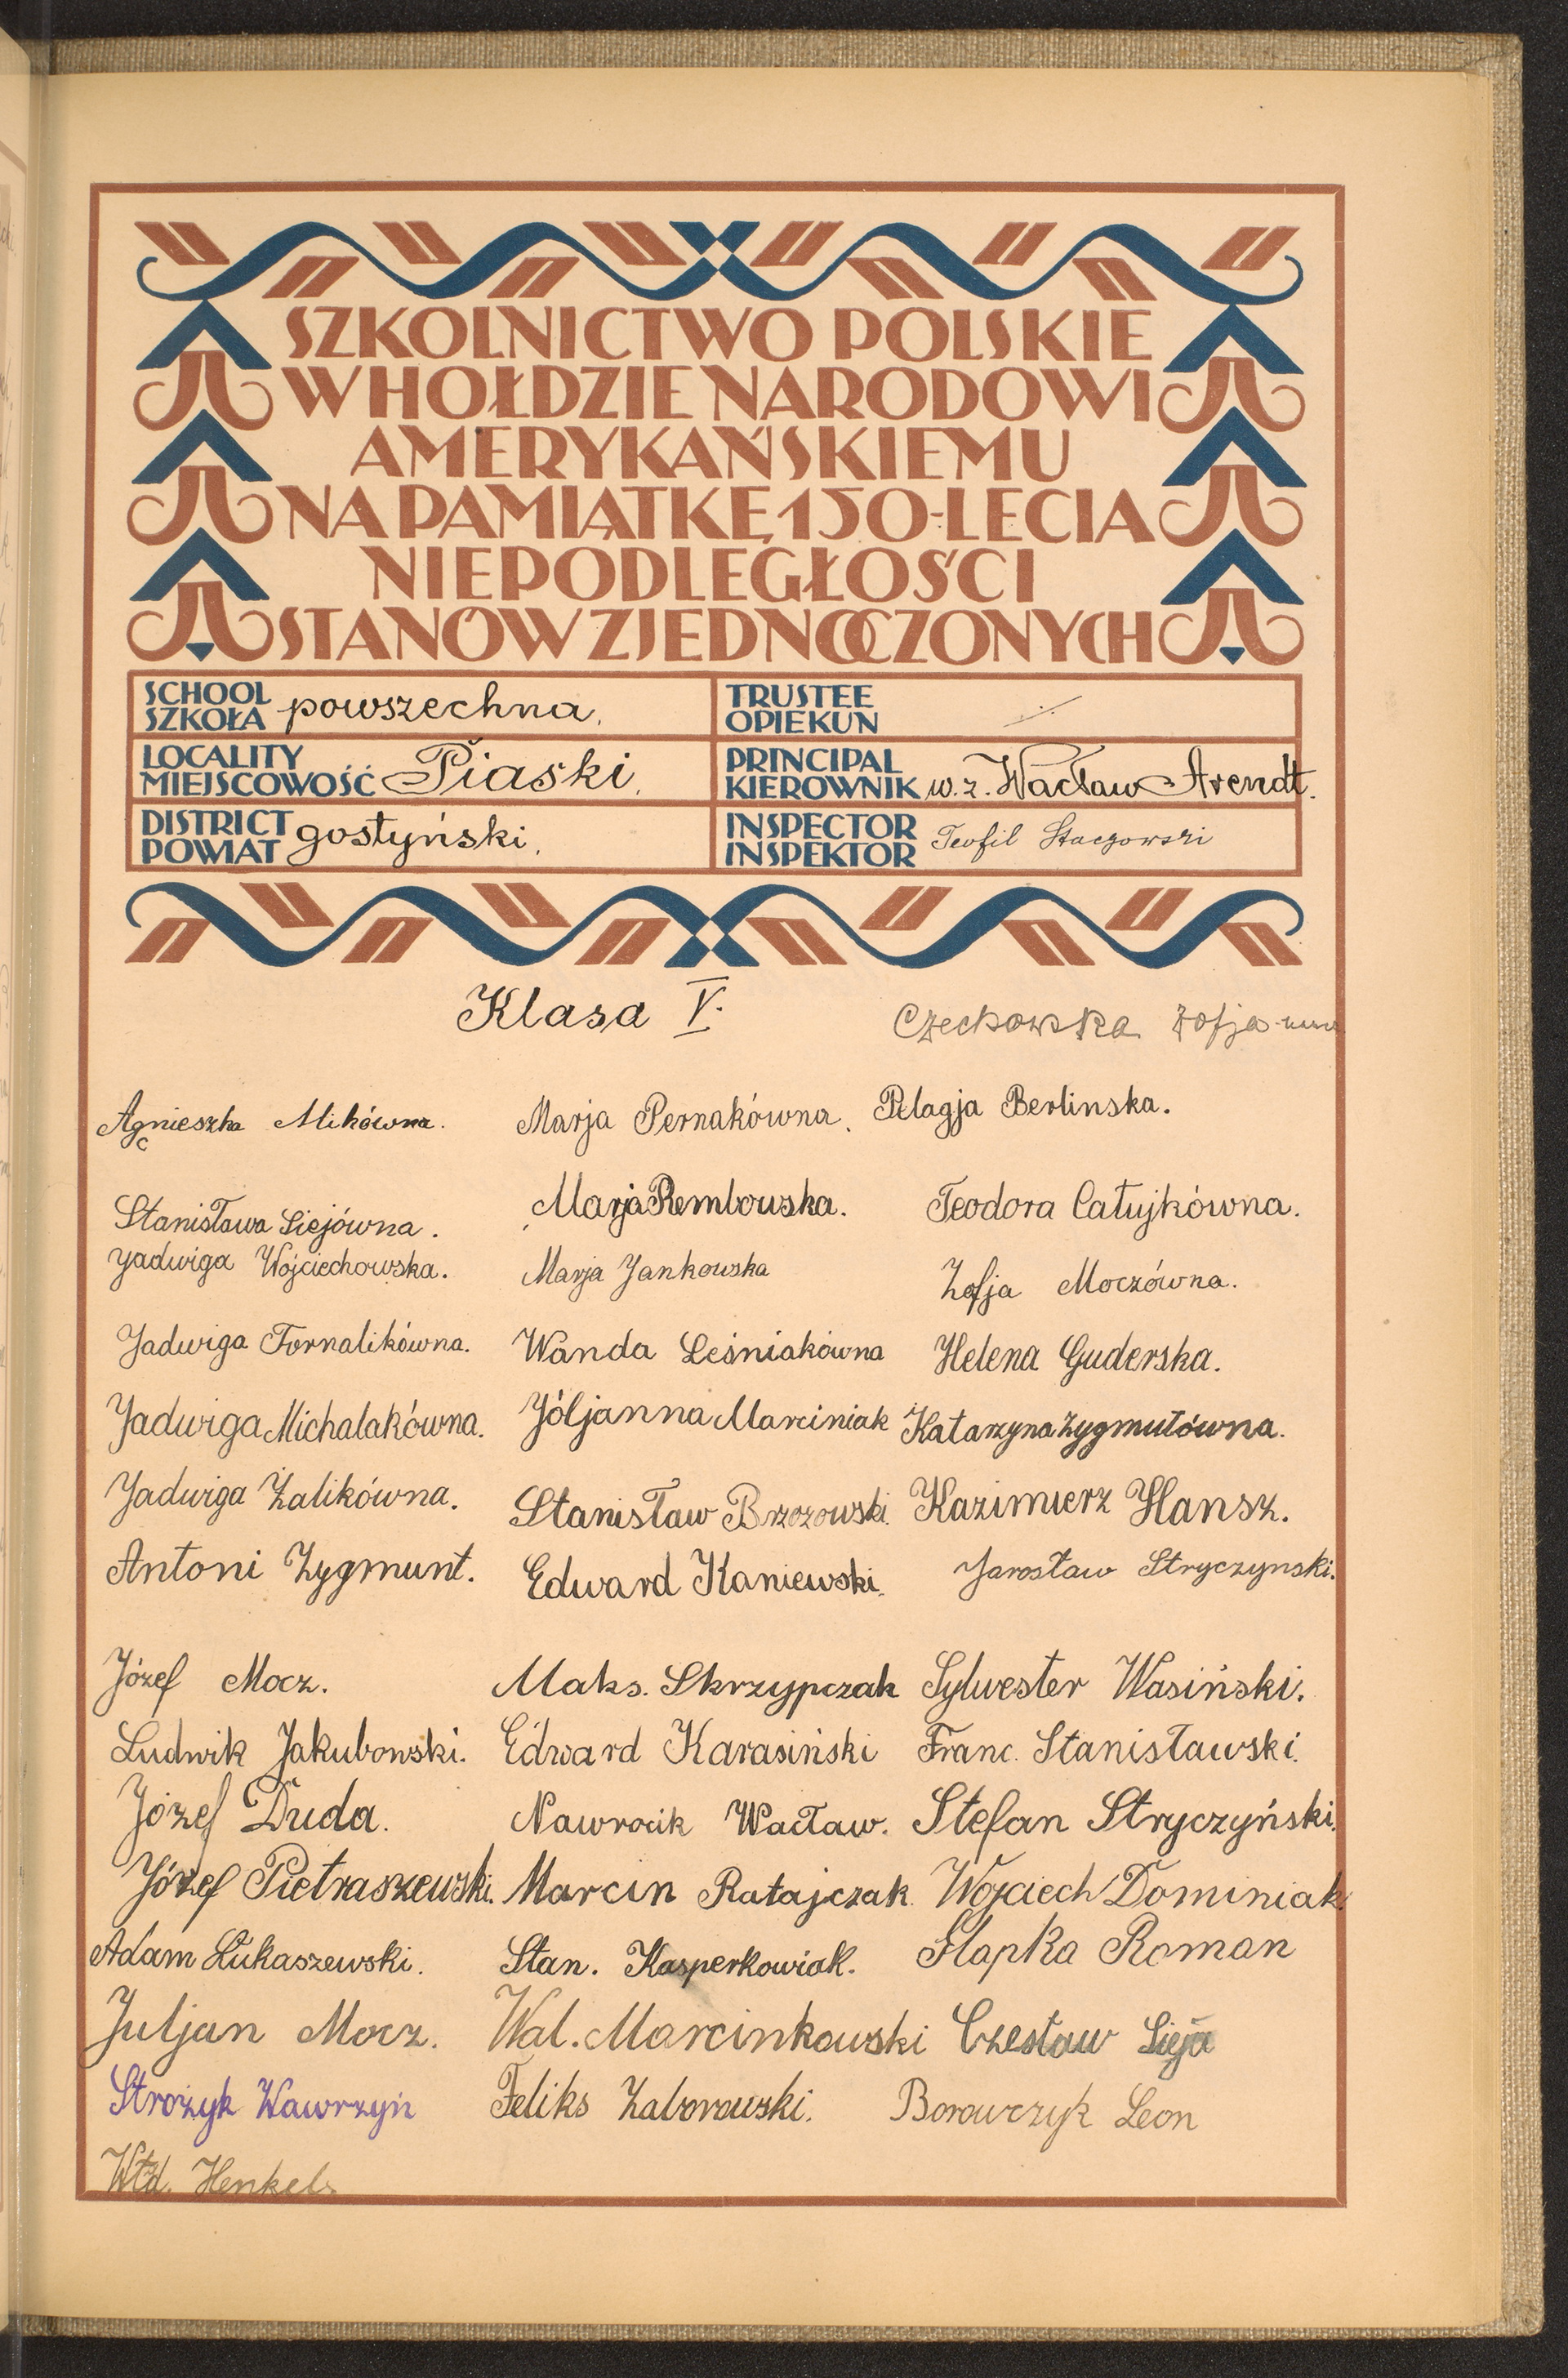 SZKOLNICTWO POLSKIE
W HOŁDZIE NARODOWI
AMERYKAŃSKIEMU
NA PAMIĄTKĘ 150-LECIA
NIEPODLEGŁOŚCI
STANÓW ZJEDNOCZONYCH
SCHOOL
SZKOŁA powszechna.
TRUSTEE
OPIEKUN
LOCALITY
MIEJSCOWOŚĆ Piaski.
PRINCIPAL
KIEROWNIK w. z. Wacław Arendt.
DISTRICT
POWIAT gostyński.
INSPECTOR
INSPEKTOR Teofil Staczowski
Klasa V.
Czechowska Zofja
Agnieszka Mikówna. Marja Pernakówna. Pelagja Berlinska.
Stanisława Siejówna. Marja Rembowska. Teodora Całujkówna.
Jadwiga Wojciechowska. Marja Jankowska Zofja Moczówna.
Jadwiga Fornalikówna. Wanda Leśniakówna Helena Guderska.
Jadwiga Michalakówna. Jóljanna Marciniak Katarzyna Zygmutówna.
Jadwiga Żalikówna. Stanisław Brzozowski. Kazimierz Hansz.
Antoni Zygmunt. Edward Kaniewski. Jarosław Stryczynski.
Józef Mocz. Maks. Skrzypczak Sylwester Wasiński.
Ludwik Jakubowski. Edward Karasiński Franc. Stanisławski.
Józef Duda. Nawrocik Wacław. Stefan Stryczyński.
Józef Pietraszewski. Marcin Ratajczak. Wojciech Dominiak.
Adam Łukaszewski. Stan. Kasperkowiak. Słapka Roman
Juljan Mocz. Wal. Marcinkowski Czesław Sieja
Strożyk Wawrzyn Feliks Zaborowski. Borowczyk Leon
Wład. Henkels